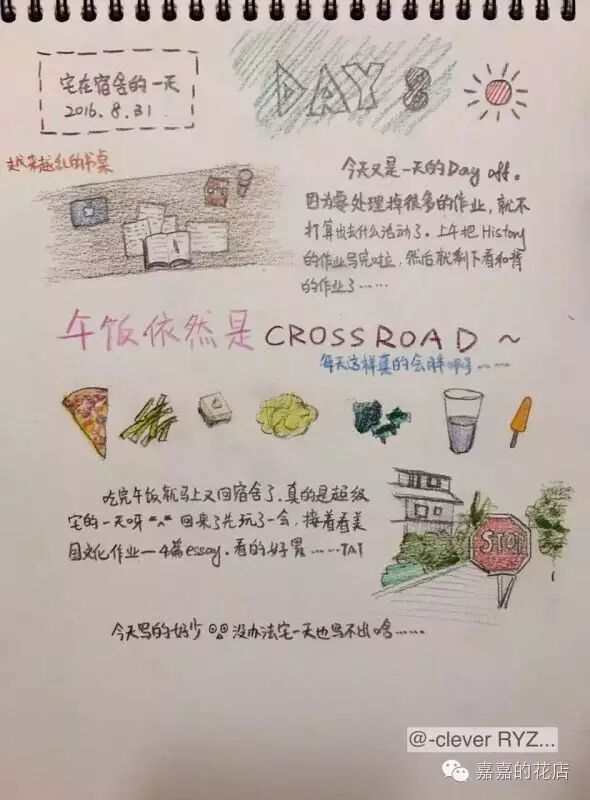 宅在宿舍的一天
2016.8.31
DAY 8
越来越乱的书桌
今天又是一天的Day off。
因为要处理掉很多的作业，就不
打算出去什么活动了。上午把History
的作业写完啦，然后就剩下看和背
的作业了……
午饭依然是CROSSROAD~
每天这样真的会胖啊……
吃完午饭就马上又回宿舍了。真的是超级
宅的一天呀^_^ 回来了先玩了一会，接着看美
国文化作业—4篇essay。看的好累……TAT
STOP
今天写的好少 没办法宅一天也写不出啥……
@-clever RYZ...
嘉嘉的花店